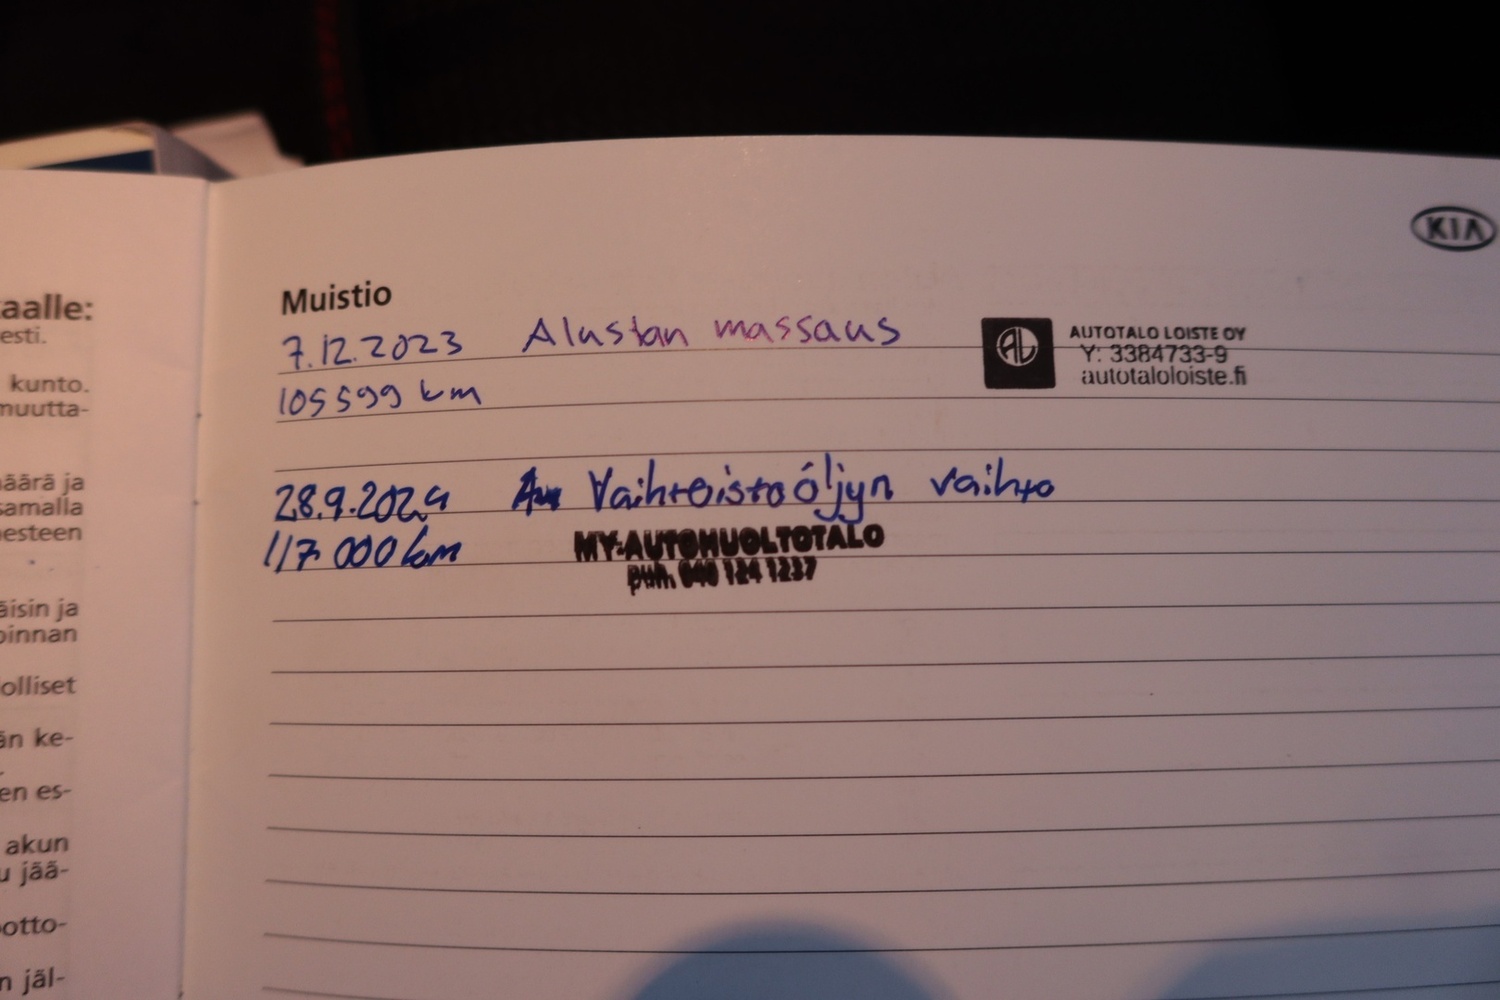 aalle:
esti.
kunto.
muutta-
äärä ja
samalla
nesteen
äisin ja
oinnan
olliset
än ke-
en es-
akun
u jää-
otto-
n jäl-
KIA
Muistio
7.12.2023 Alustan massaus
105599 km
AL
AUTOTALO LOISTE OY
Y: 3384733-9
autotaloloiste.fi
28.9.2024 Vaihteistoöljyn vaihto
117 000 km
MY-AUTOHUOLTOTALO
puh. 040 124 1237